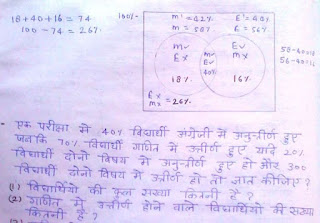 18+40+16 = 74
100 - 74 = 26%
100%
m' = 42%
E' = 44%
m = 58%
E = 56%
m✓
E✗
18%
m✓
E✓
40%
E✓
m✗
16%
E✗
m✗ = 26%
58-40=18
56-40=16
एक परीक्षा में 40% विद्यार्थी अंग्रेजी में अनुत्तीर्ण हुए
जबकि 70% विद्यार्थी गणित में उत्तीर्ण हुए यदि 20%
विद्यार्थी दोनों विषय में अनुत्तीर्ण हुए हो और 300
विद्यार्थी दोनो विषय में उत्तीर्ण हो तो ज्ञात कीजिए?
(1) विद्यार्थियो की कुल संख्या कितनी है?
(2) गणित में उत्तीर्ण होने वाले विद्यार्थियो की संख्या
कितनी है?